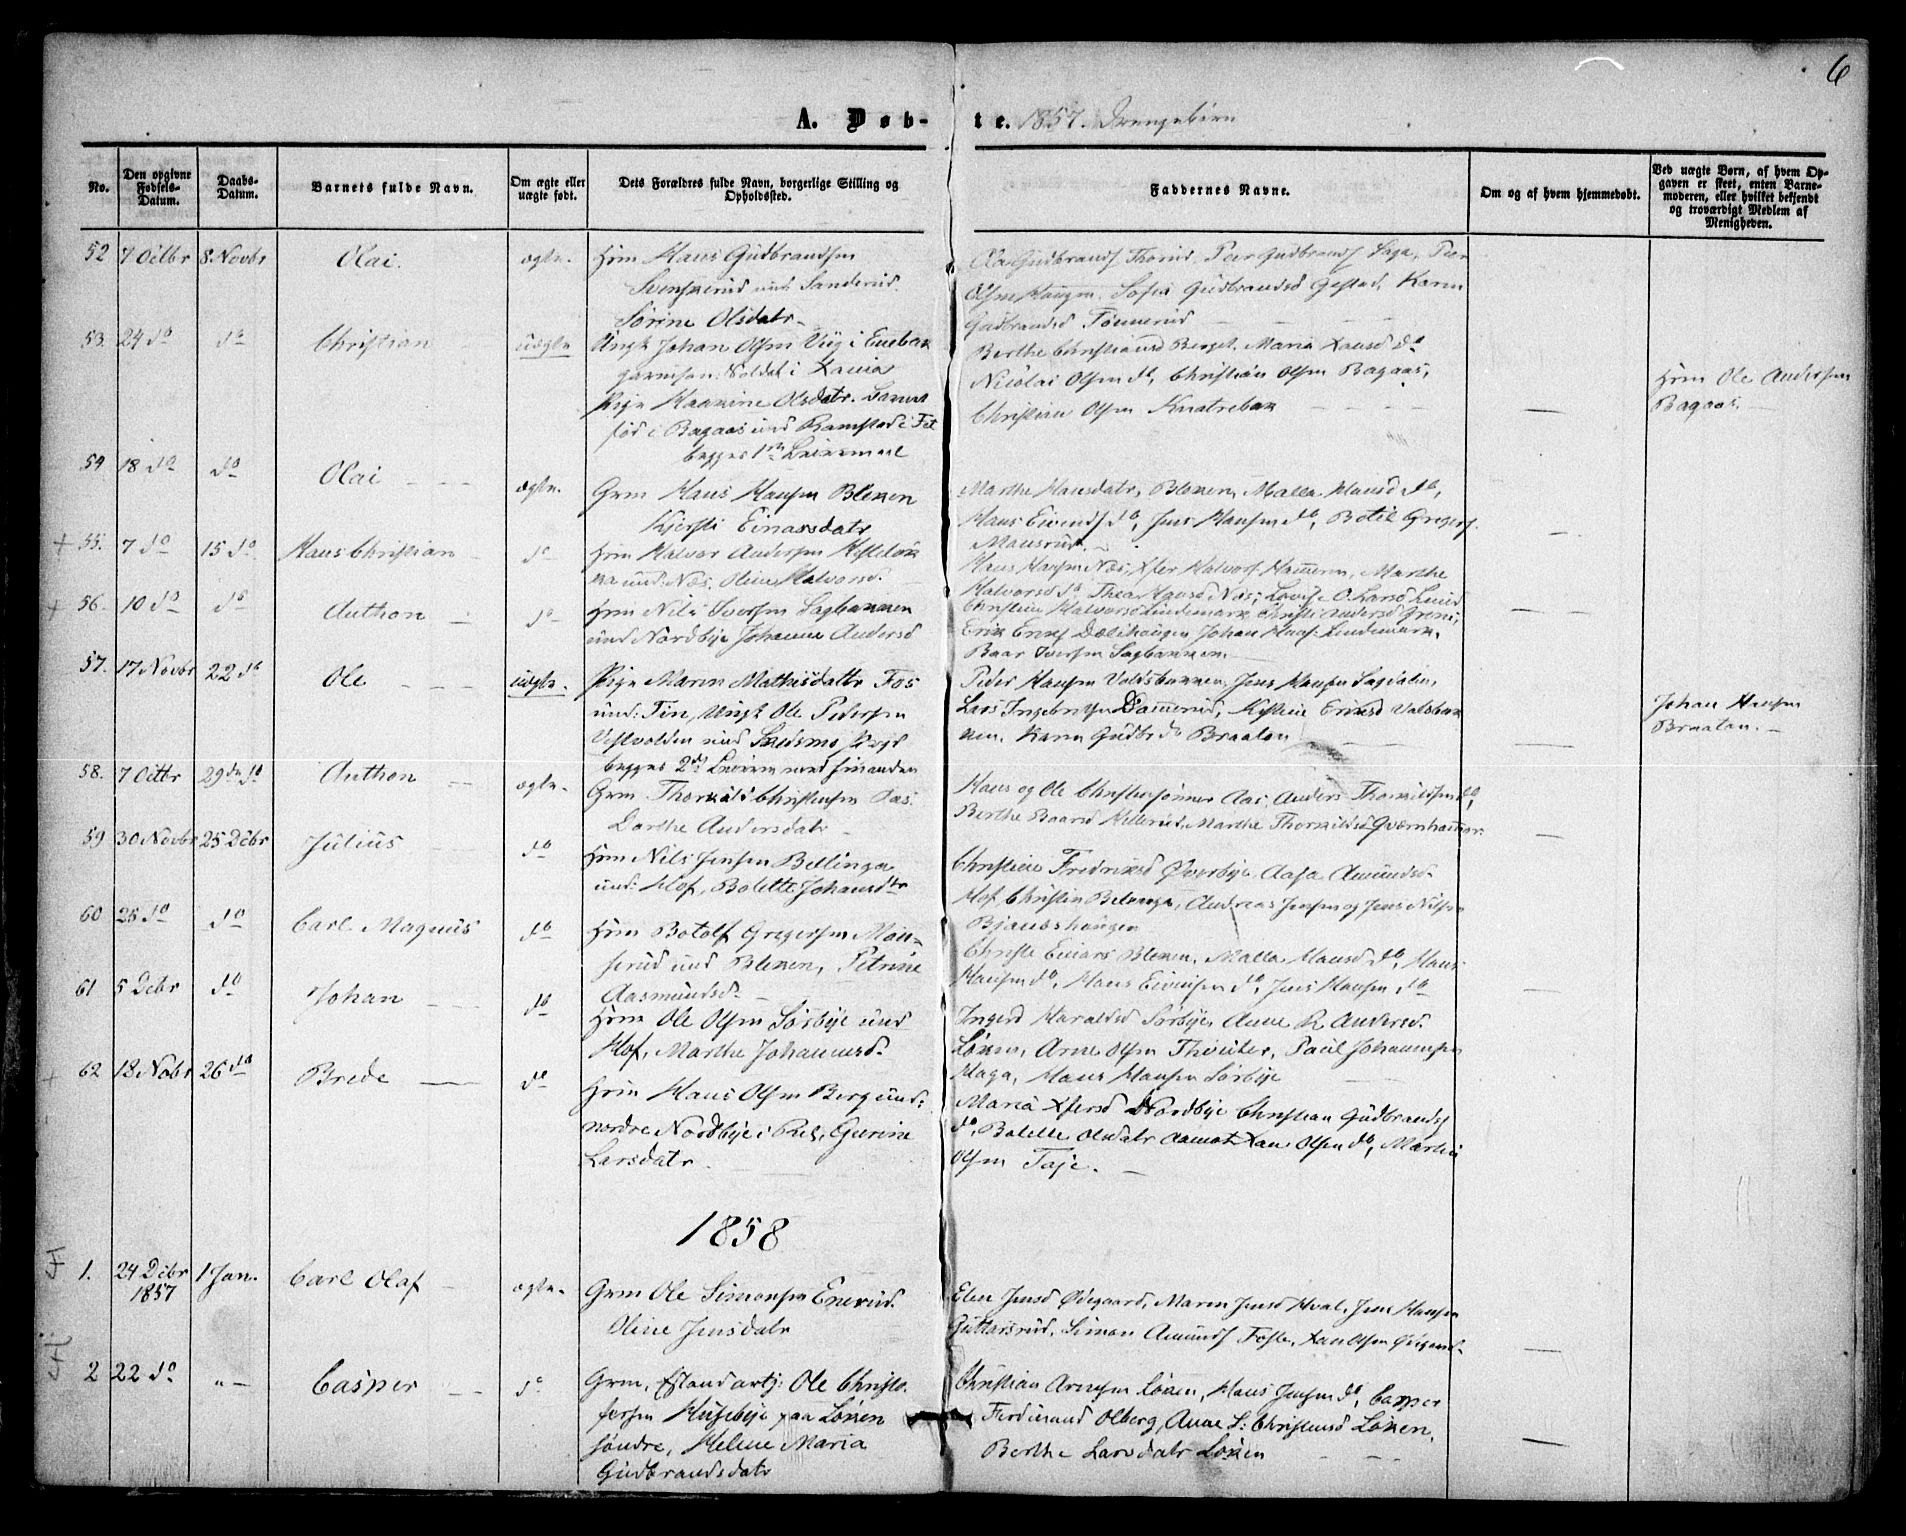 6
A. Døb- te. 1857. Drengebørn
No.
Den opgivne Fødsels-Datum.
Daabs-Datum.
Barnets fulde Navn.
Om ægte eller uægte født.
Dets Forældres fulde Navn, borgerlige Stilling og Opholdssted.
Faddernes Navne.
Om og af hvem hjemmedøbt.
Ved uægte Børn, af hvem Opgaven er skeet, enten Barnemoderen, eller hvilket bekjendt og troværdigt Medlem af Menigheden.
52 7 Octbr 8 Novbr Olai. ægte.
Hsm Hans Gudbrandsen
Svenskerud und: Sanderud.
Sørine Olsdatr
Ola Gudbrands Thorud, Peer Gudbrands Saga, Peer
Olsen Haugen, Sofia Gudbrandsd Gystad, Karen
Gudbrandsd Tønnerud
53. 24 do do Christian uægte
Ungk Johan Olsen Viig i Enebak
garnison: Soldat i Xania
Pige Maarine Olsdatr. Barnet
fød i Bagaas und Ramstad i Fet
begges 1ste Leiermaal
Berthe Christiansd Berget. Maria Hansd do
Nicolai Olsen do, Christian Olsen Bagaas,
Christian Olsen Knatrebak
Hsm Ole Andersen
Bagaas.
54 18 do do Olai ægte.
Grm Hans Hansen Bleken
Kjersti Einarsdatr
Marthe Hansdatr, Bleken, Malla Hansd do,
Hans Eivends do, Jens Hansen do, Botil Gregers.
Mausrud.
+ 55. 7 do 15 do Hans Christian do
Hsm Halvor Andersen
und: Næs. Oline Halvorsd.
Hans Hansen Næs, Xfer Halvors Hammeren, Marthe
Halvorsd do Thea Hansd Næs, Lovise O. Larsd Lund
+ 56. 10 do do Anthon do
Hsm Nils Iversen Sagbakken
und Nordbye Johanne Andersd
Christine Halvorsd Lindemark, Christi Andersd Grøni,
Erik Eriks Dælihaugen Johan Hans: Lindemark.
Baar Iversen Sagbakken
57. 17 Novbr 22 do Ole uægte.
Pige Maren Mathisdattr Fos
und: Tin, Ungk Ole Pedersen
Vestvolden und Skedsmo Prgd
begges 2det Leierm med hinanden
Peder Hansen Valdsbakken, Jens Hansen Sagdalen,
Lars Ingebretsen Dammerud, Kistine Eriksd Valsbak
ken. Karen Gudbrd Braaten
Johan Hansen
Braatan.
58. 7 Octbr 29de do Anthon ægte.
Grm Thorkild Christensen Aas.
Dorthe Andersdatr
Hans og Ole Christensønner Aas, Anders Thorkildsen do,
Berthe Baarsd Hellerud, Marthe Thorkildsd Qværnhammer.
59 30 Novbr 25 Debr Julius do
Hsm Nils Jensen Bellinga
und: Hof, Bolette Johansdtr
Christine Fredriksd Øverbye, Aase Amundsd.
Hof Christin Belinga, Andreas Jensen og Jens Nilsen
Bjaneshaugen
60 25 do do Carl Magnus do
Hsm Botolf Gregersen Mau-
serud und Bleken, Petrine
Aasmundsd.
Christie Einars Bleken, Malla Hansd do, Hans
Hansen do, Hans Eivinsen do, Jens Hansen do
61 5 Debr do Johan do
Hsm Ole Olsen Sørbye und
Hof, Marthe Johannesd.
Ingerd Haraldsd Sørbye, Anne R. Andersd.
Løken, Arne Olsen Thoiter, Paul Johannesen
Haga, Hans Hansen Sørbye
+ 62 18 Nobr 26 do Brede do
Hsm Hans Olsen Berg und:
nordre Nordbye i Rel, Gurine
Larsdatr.
Maria Xfersd Nordbye Christian Gudbrands
do, Bolette Olsdatr Aamot Xan Olsen do, Martin
Olsen Taje.
1858
1. 24 Debr 1857 1 Jan. Carl Olaf ægte.
Grm Ole Simonsen Enerud.
Oline Jensdatr
Elen Jensd Ødegaard, Maren Jensd Hval, Jens Hansen
Guttorsrud, Simon Amunds Foste, Xan Olsen Ødegaard.
2 22 do „— Casper do
Grm, Islandartj: Ole Christo-
fersen Husebye paa Løken
søndre, Helene Maria
Gudbrandsdatr
Christian Arnesen Løken, Hans Jensen do, Casper
Ferdinand Olberg, Anne L: Christensd Løken,
Berthe Larsdatr Løken